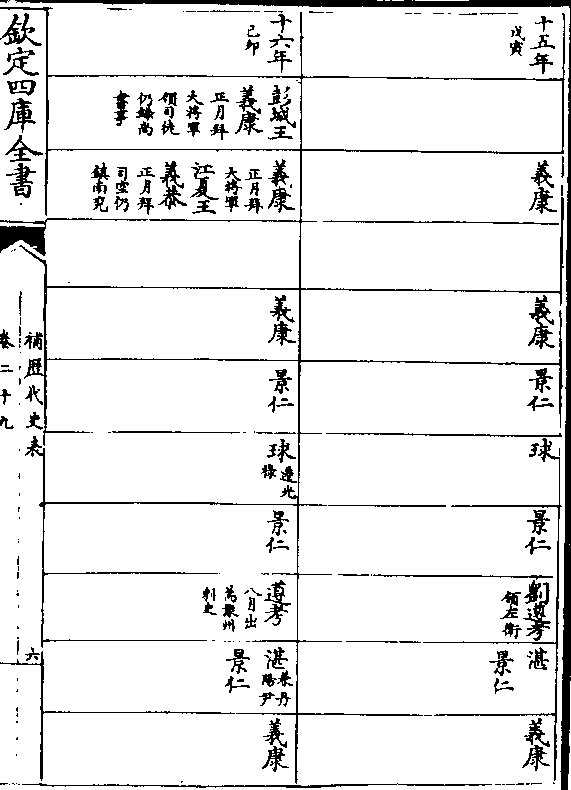 十五年
戊寅
義康
義康
景仁
球
景仁
劉遵考
領左衛
湛
景仁
義康
十六年
己卯
彭城王
義康
正月拜
大將軍
領司徒
仍錄尚
書事
義康
正月拜
大將軍
江夏王
義恭
正月拜
司空仍
鎮南兖
義康
景仁
球
遷光
祿
景仁
遵考
八月出
為豫州
刺史
湛
景仁
義康
欽定四庫全書
補歷代史表
卷二十九
六